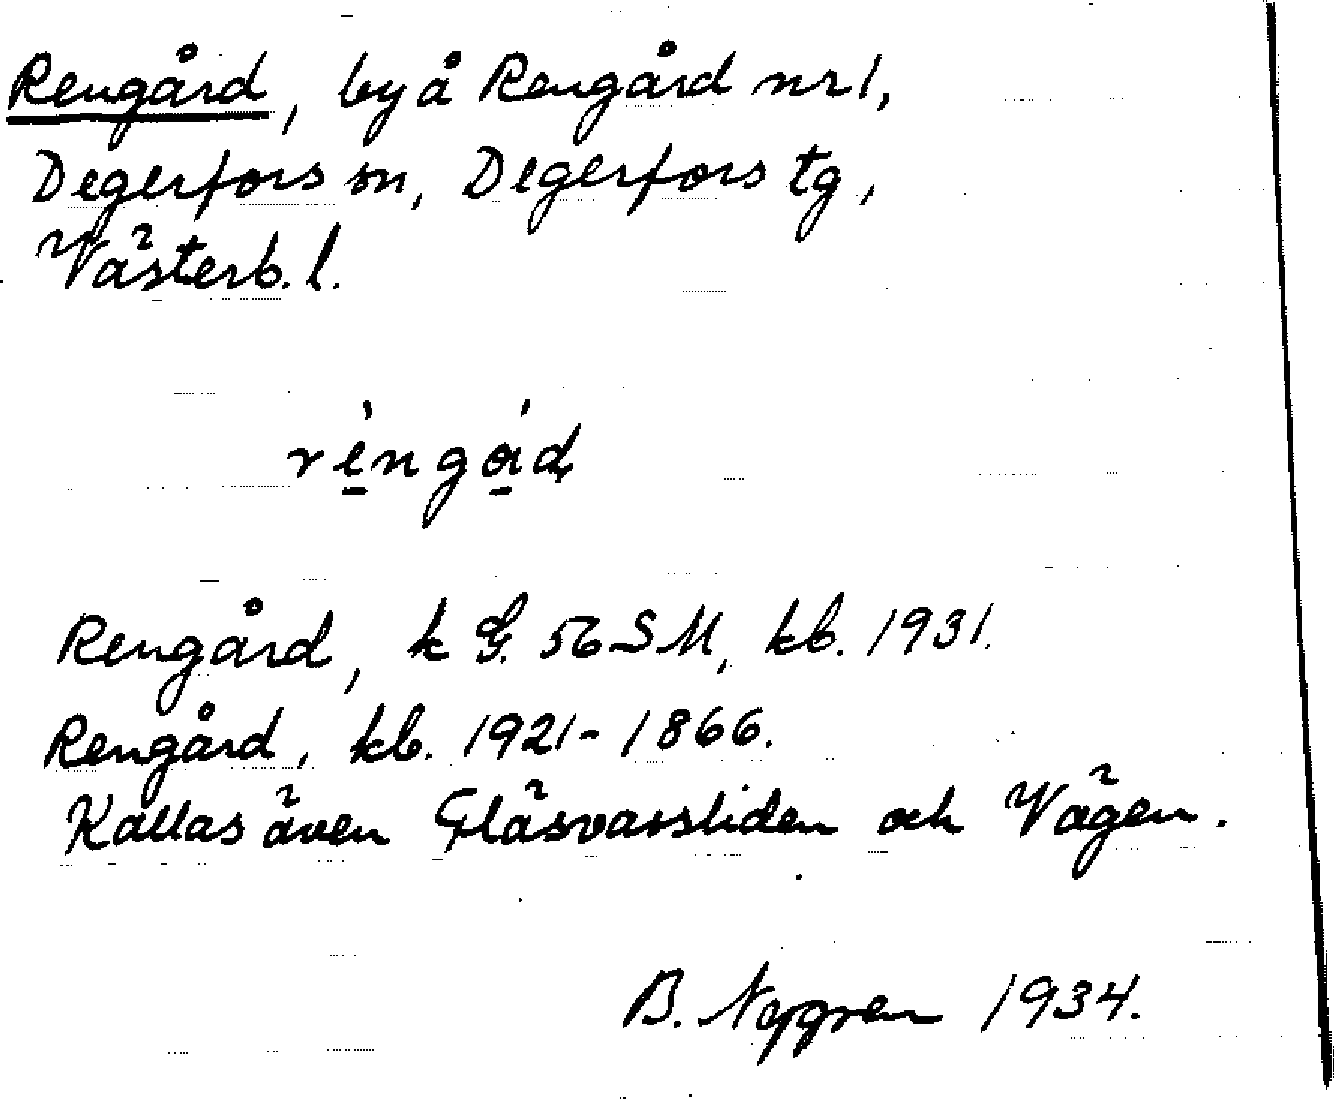 Rengård, by å Rengård nr 1,
Degerfors sn, Degerfors tg,
Västerb. l.
Rengård, k G. 56 SM, kb. 1931.
Rengård, kb. 1921-1866.
Kallas även Fläsvassliden och Vägen.
B. Nygren 1934.